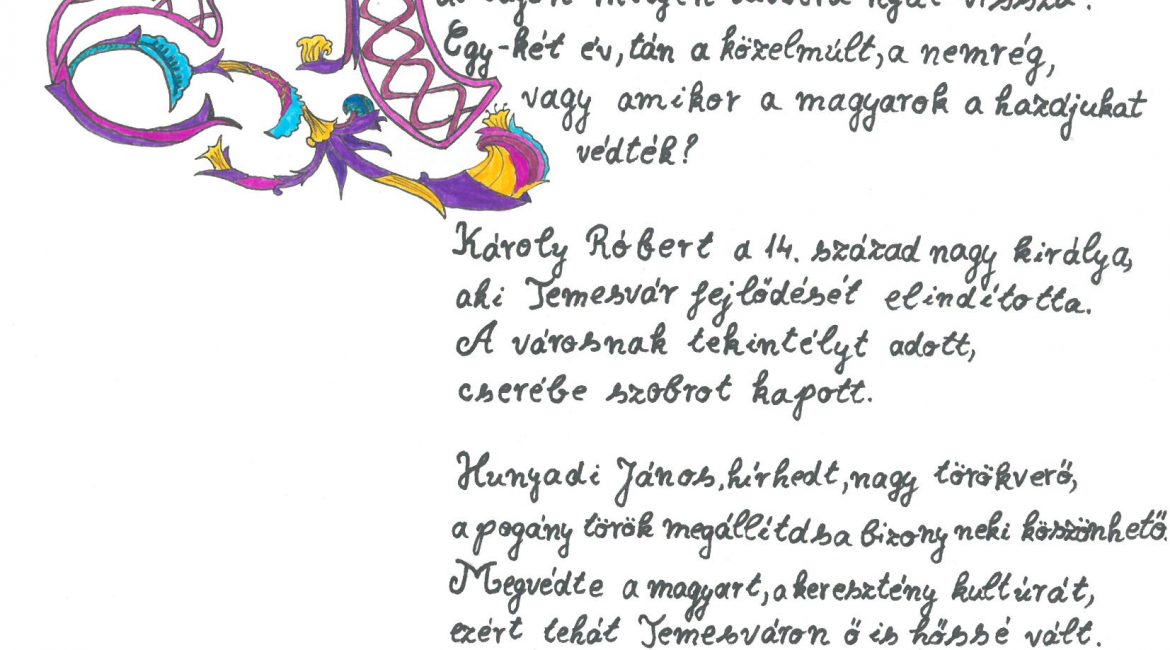 vissza.
Egy-két év, tán a közelmúlt, a nemrég,
vagy amikor a magyarok a hazájukat
védték?
Károly Róbert a 14. század nagy királya,
aki Temesvár fejlődését elindította.
A városnak tekintélyt adott,
cserébe szobrot kapott.
Hunyadi János, hírhedt, nagy törökverő,
a pogány török megállítása bizony neki köszönhető.
Megvédte a magyart, a keresztény kultúrát,
ezért tehát Temesváron ő is hőssé vált.